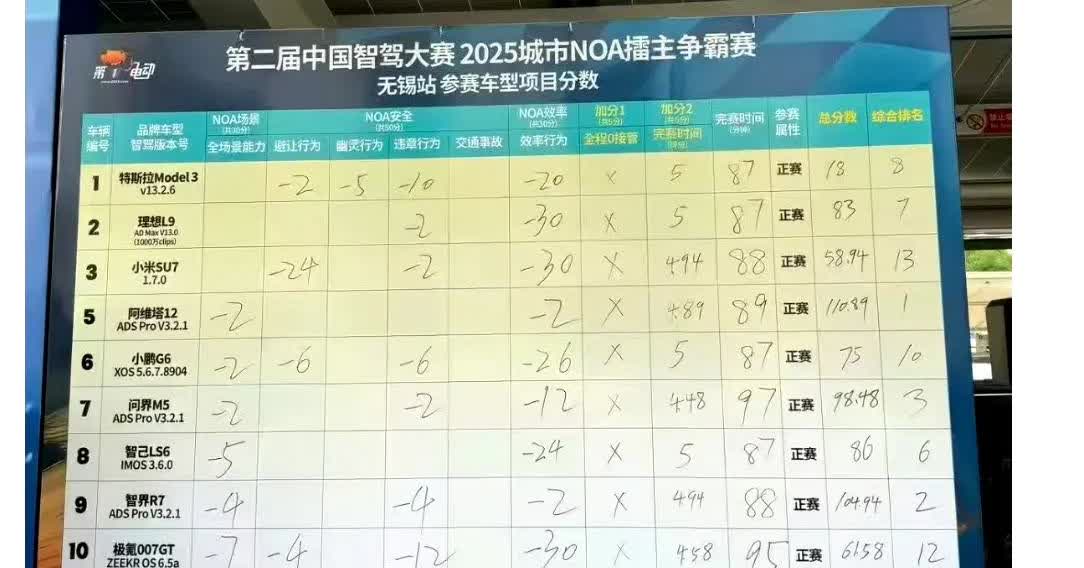 第1电动
第二届中国智驾大赛 2025城市NOA擂主争霸赛
无锡站 参赛车型项目分数
车辆编号 品牌车型智驾版本号 NOA场景(共30分) NOA安全(共50分) NOA效率(共30分) 加分1(共5分) 加分2(共5分) 完赛时间(分钟) 参赛属性 总分数 综合排名
全场景能力 避让行为 幽灵行为 违章行为 交通事故 效率行为 全程0接管 完赛时间
1 特斯拉Model 3 -2 -5 -10 -20 × 5 87 正赛 18 8
v13.2.6
2 理想L9 -2 -30 × 5 87 正赛 83 7
AD Max V13.0
(1000万clips)
3 小米SU7 -24 -2 -30 × 4.94 88 正赛 58.94 13
1.7.0
5 阿维塔12 -2 -2 × 4.89 89 正赛 110.89 1
ADS Pro V3.2.1
6 小鹏G6 -2 -6 -6 -26 × 5 87 正赛 75 10
XOS 5.6.7.8904
7 问界M5 -2 -2 -12 × 4.48 97 正赛 98.48 3
ADS Pro V3.2.1
8 智己LS6 -5 -24 × 5 87 正赛 86 6
IMOS 3.6.0
9 智界R7 -4 -4 -2 × 4.94 88 正赛 104.94 2
ADS Pro V3.2.1
10 极氪007GT -7 -4 -12 -30 × 4.58 95 正赛 61.58 12
ZEEKR OS 6.5a